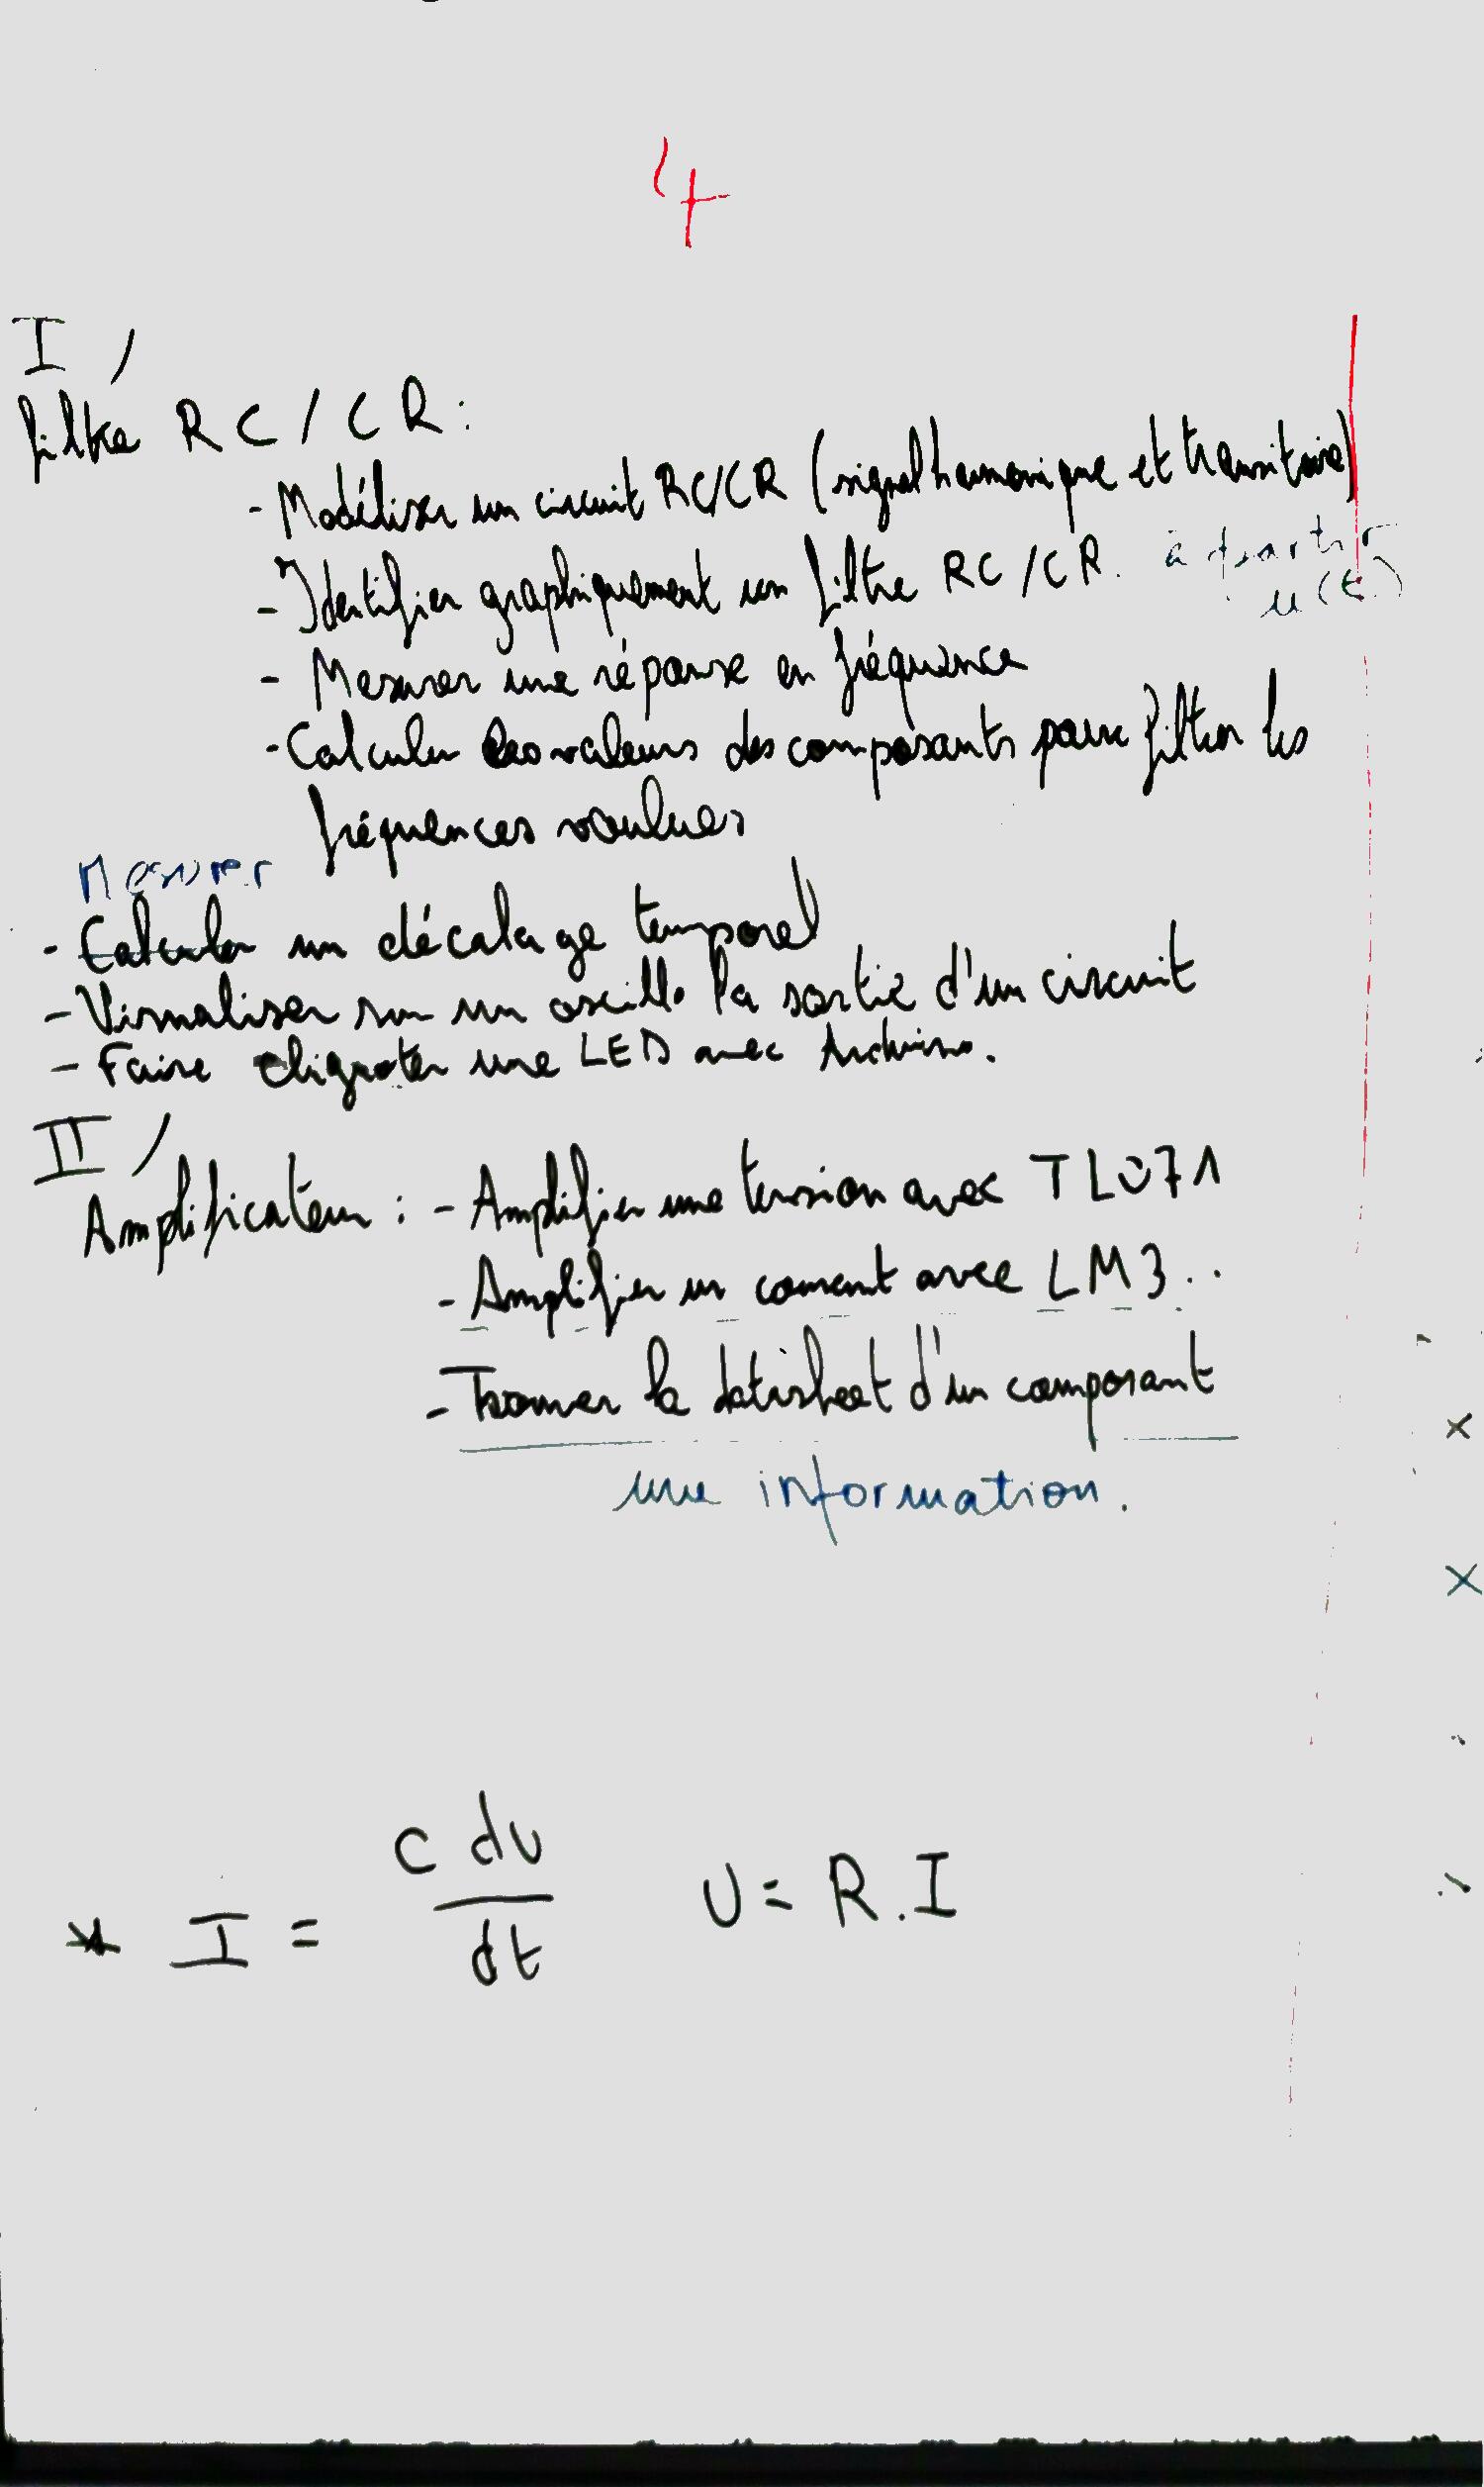 4
I /
filtre RC / CR :
- Modéliser un circuit RC/CR (signal harmonique et transitoire)
- Identifier graphiquement un filtre RC / CR. à partir
u(t)
- Mesurer une réponse en fréquence
- Calculer les valeurs des composants pour filtrer les
fréquences voulues
Mesurer
- Calculer un décalage temporel
- Visualiser sur un oscillo la sortie d'un circuit
- Faire clignoter une LED avec Arduino.
II /
Amplificateur : - Amplifier une tension avec TL071
- Amplifier un courant avec LM3..
- Trouver la datisheet d'un composant
une information.
* I = C du / dt U = R.I